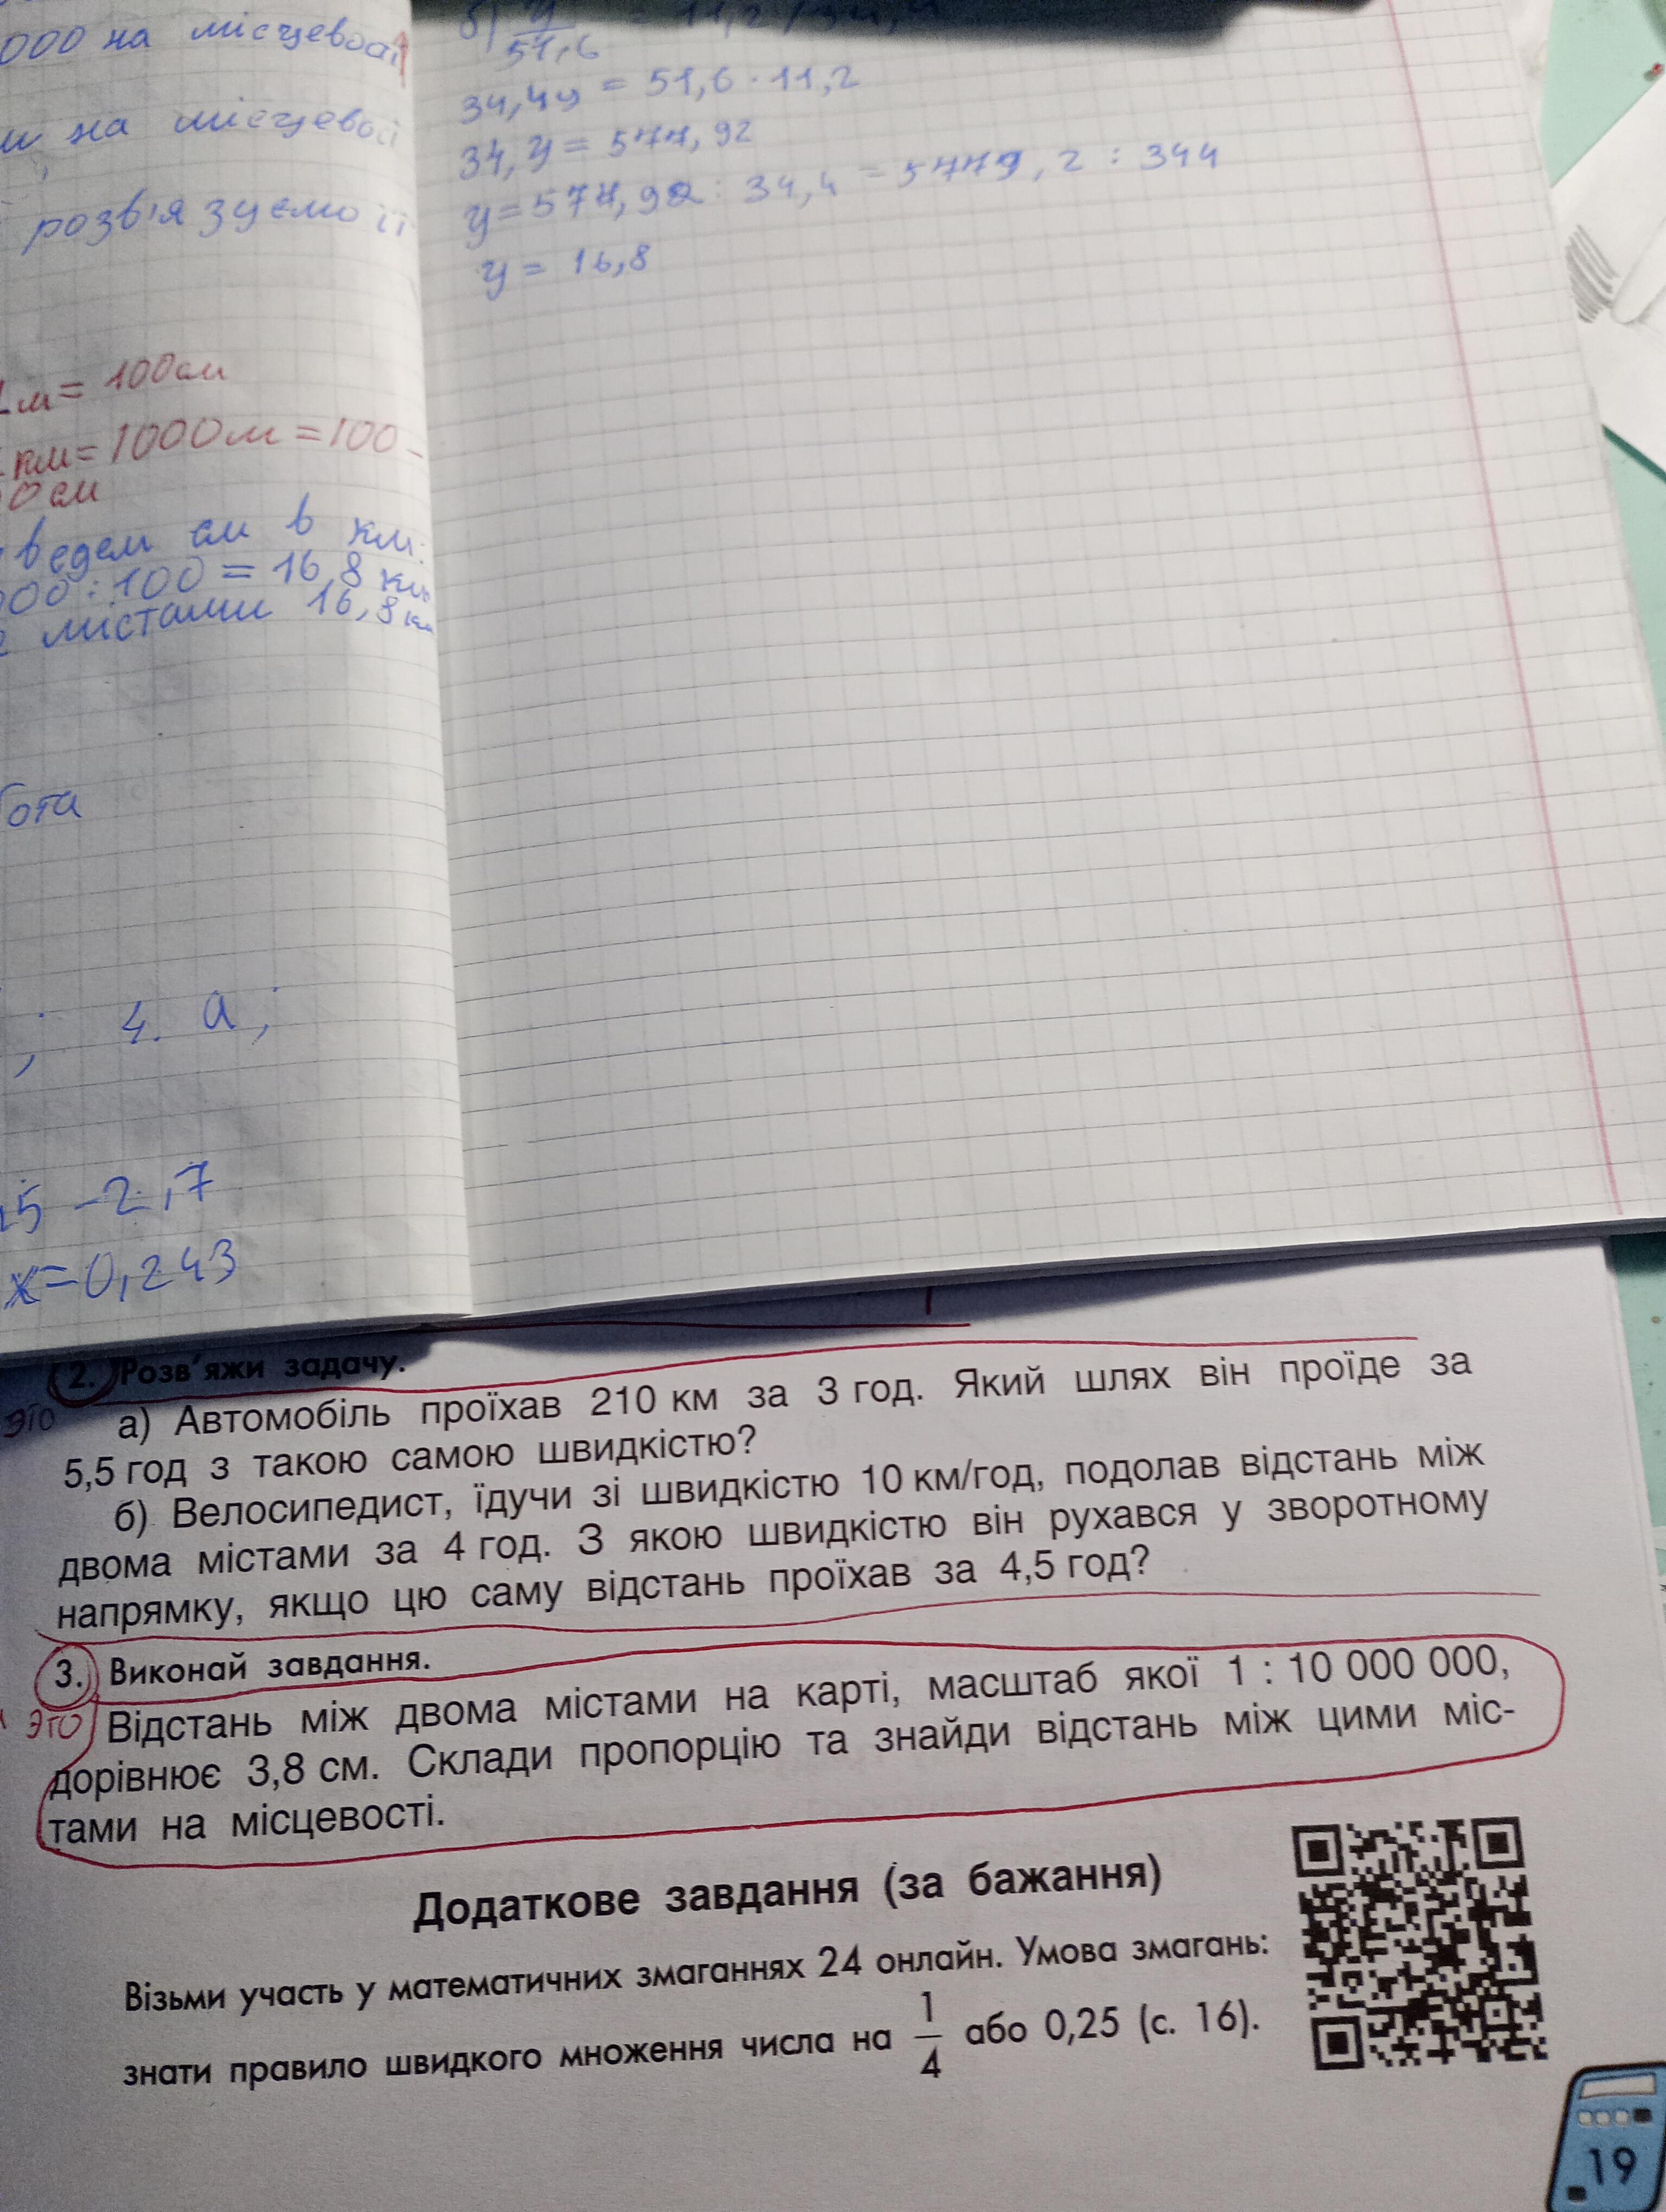 000 на місцевості
м на місцевості
розв'язуємо її
1м = 100см
км = 1000м = 100
0см
ведем см в км:
000 : 100 = 16,8 км
містами 16,8 км
ота
; 4. а;
,5 - 2,7
х = 0,243
б) у/51,6
34,4у = 51,6 · 11,2
34,у = 577,92
у = 577,92 : 34,4 = 5779,2 : 344
у = 16,8
2. Розв'яжи задачу.
это
а) Автомобіль проїхав 210 км за 3 год. Який шлях він проїде за
5,5 год з такою самою швидкістю?
б) Велосипедист, їдучи зі швидкістю 10 км/год, подолав відстань між
двома містами за 4 год. З якою швидкістю він рухався у зворотному
напрямку, якщо цю саму відстань проїхав за 4,5 год?
3. Виконай завдання.
это
Відстань між двома містами на карті, масштаб якої 1 : 10 000 000,
дорівнює 3,8 см. Склади пропорцію та знайди відстань між цими міс-
тами на місцевості.
Додаткове завдання (за бажання)
Візьми участь у математичних змаганнях 24 онлайн. Умова змагань:
знати правило швидкого множення числа на 1/4 або 0,25 (с. 16).
19